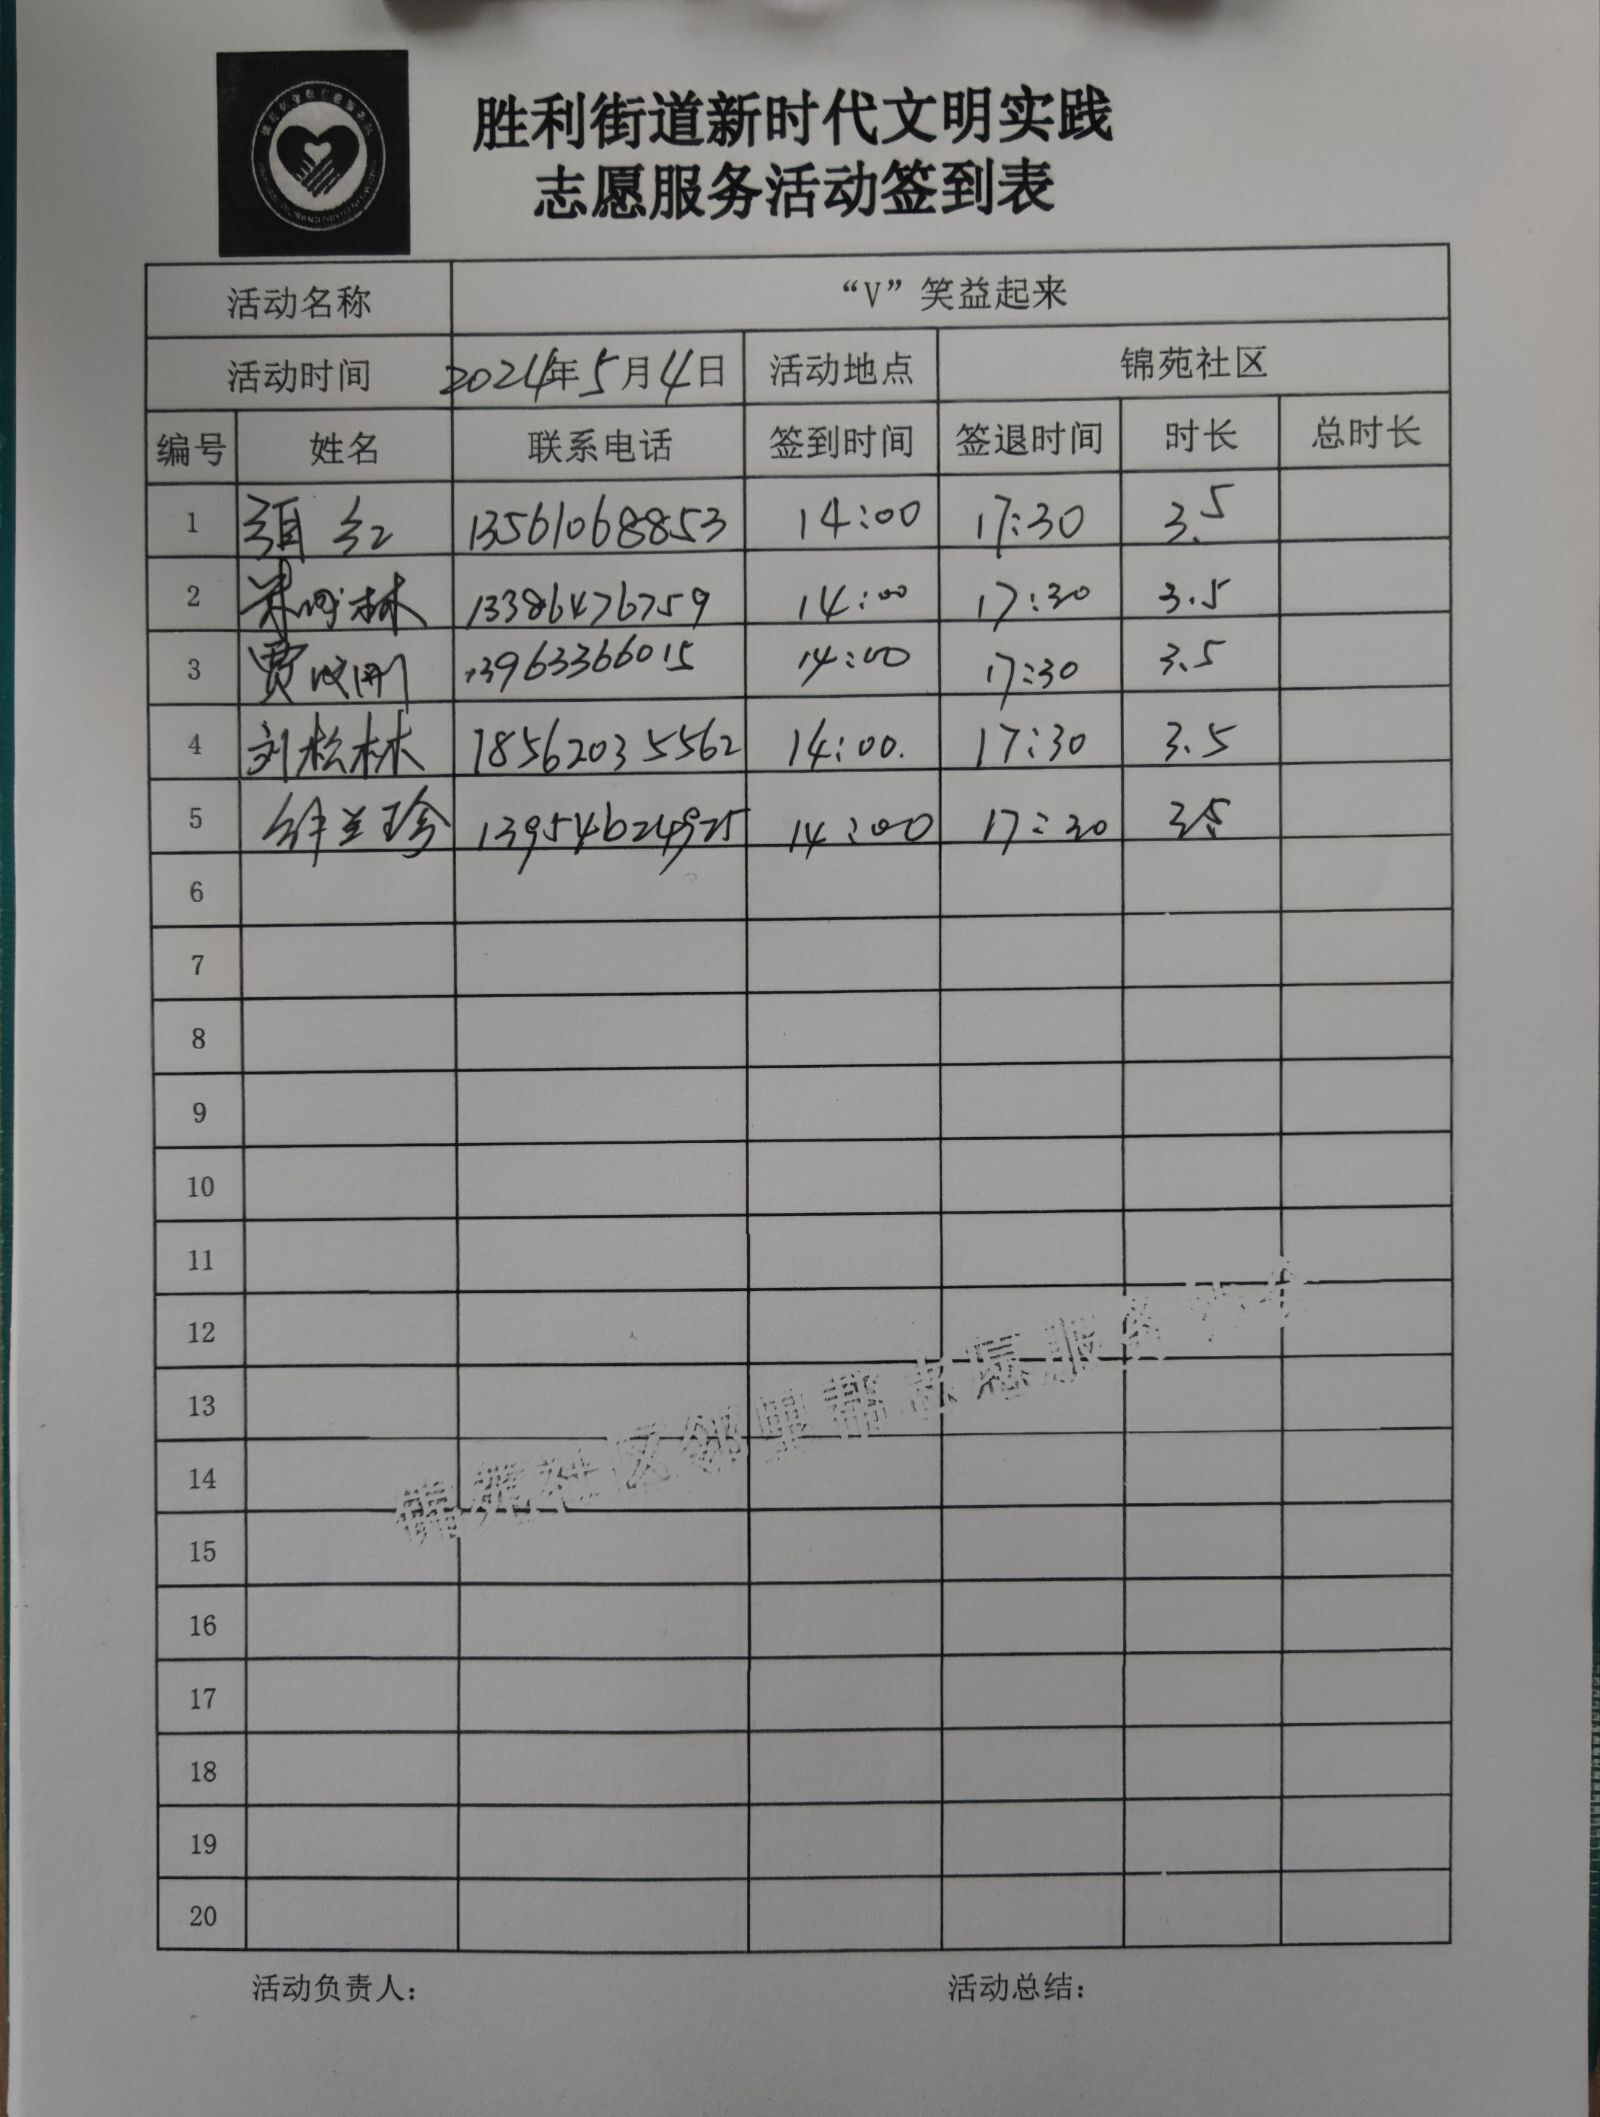 胜利街道新时代文明实践
志愿服务活动签到表
活动名称 “V”笑益起来
活动时间 2024年5月4日 活动地点 锦苑社区
编号 姓名 联系电话 签到时间 签退时间 时长 总时长
1 项红 13561068853 14:00 17:30 3.5
2 林 13386476759 14:00 17:30 3.5
3 贾 13963366015 14:00 17:30 3.5
4 刘松林 18562035562 14:00. 17:30 3.5
5 徐兰珍 13954624925 14:00 17:30 3.5
6
7
8
9
10
11
12
13
14
15
16
17
18
19
20
锦苑社区邻里帮志愿服务
活动负责人: 活动总结: